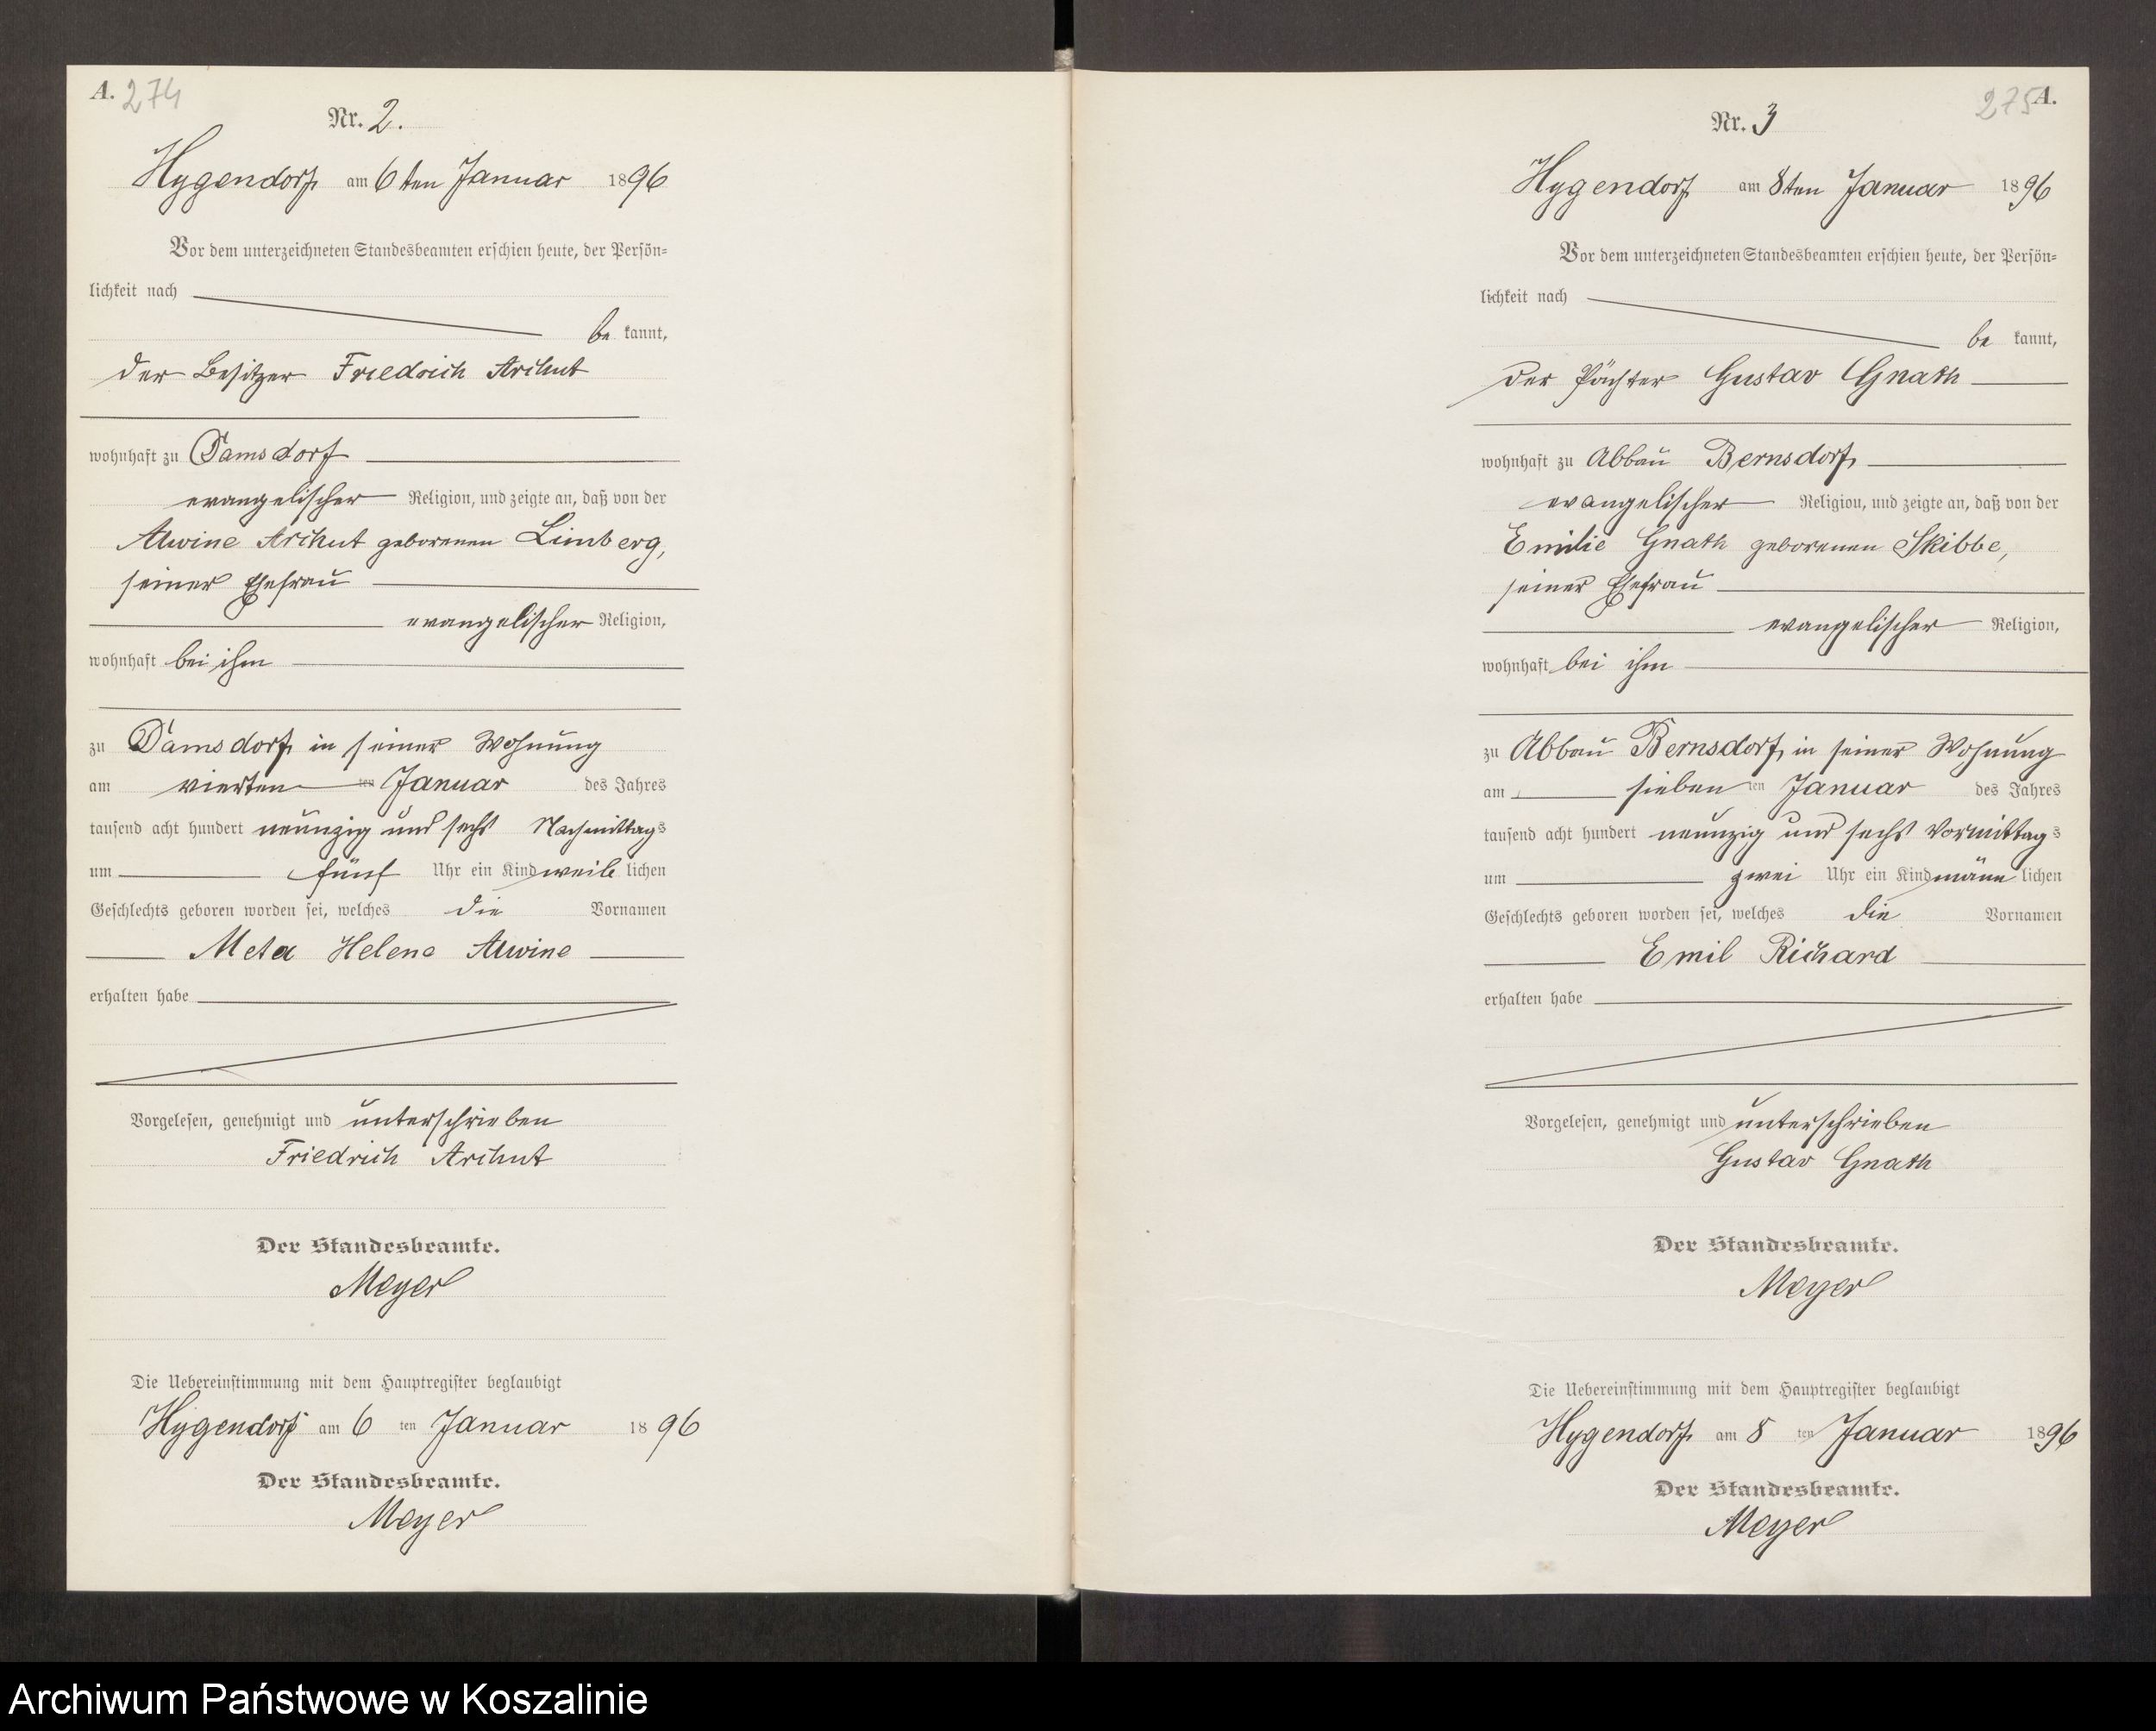 A. 274
Nr. 2.
Hygendorf am 6ten Januar 1896
Vor dem unterzeichneten Standesbeamten erschien heute, der Persön=
lichkeit nach
be kannt,
der Besitzer Friedrich
wohnhaft zu Damsdorf
evangelischer Religion, und zeigte an, daß von der
Alwine geborenen Limberg,
seiner Ehefrau
evangelischer Religion,
wohnhaft bei ihm
zu Damsdorf in seiner Wohnung
am vierten ten Januar des Jahres
tausend acht hundert neunzig und sechs Nachmittags
um fünf Uhr ein Kind weib lichen
Geschlechts geboren worden sei, welches die Vornamen
Meta Helene Alwine
erhalten habe
Vorgelesen, genehmigt und unterschrieben
Friedrich
Der Standesbeamte.
Meyer
Die Uebereinstimmung mit dem Hauptregister beglaubigt
Hygendorf am 6 ten Januar 1896
Der Standesbeamte.
Meyer
275 A.
Nr. 3
Hygendorf am 8ten Januar 1896
Vor dem unterzeichneten Standesbeamten erschien heute, der Persön=
lichkeit nach
be kannt,
der Pächter Gustav Gnath
wohnhaft zu Abbau Bernsdorf
evangelischer Religion, und zeigte an, daß von der
Emilie Gnath geborenen Skibbe,
seiner Ehefrau
evangelischer Religion,
wohnhaft bei ihm
zu Abbau Bernsdorf in seiner Wohnung
am sieben ten Januar des Jahres
tausend acht hundert neunzig und sechs Vormittags
um zwei Uhr ein Kind männ lichen
Geschlechts geboren worden sei, welches die Vornamen
Emil Richard
erhalten habe
Vorgelesen, genehmigt und unterschrieben
Gustav Gnath
Der Standesbeamte.
Meyer
Die Uebereinstimmung mit dem Hauptregister beglaubigt
Hygendorf am 8 ten Januar 1896
Der Standesbeamte.
Meyer
Archiwum Państwowe w Koszalinie